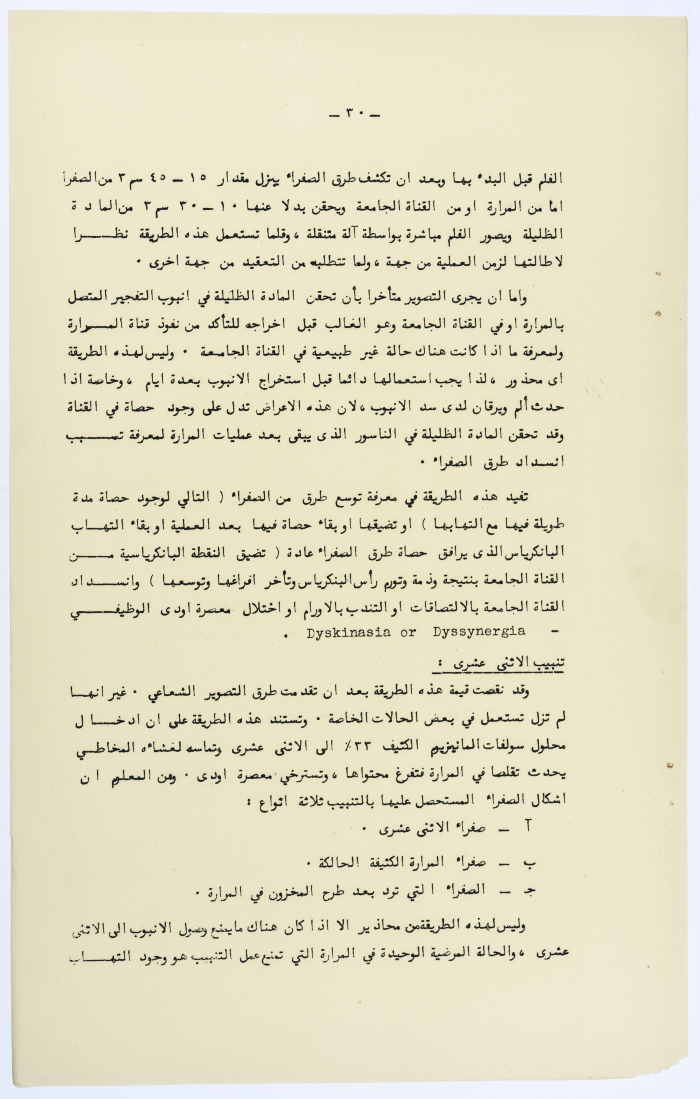 — ٣٠ —
الفلم قبل البدء بها وبعد ان تكشف طرق الصفراء ييزل مقدار ١٥ — ٤٥ سم ٣ من الصفرا
اما من المرارة او من القناة الجامعة ويحقن بدلا عنها ١٠ — ٣٠ سم ٣ من المادة
الظليلة ويصور الفلم مباشرة بواسطة آلة متنقلة ، وقلما تستعمل هذه الطريقة نظـــرا
لاطالتها لزمن العملية من جهة ، ولما تتطلبه من التعقيد من جهة اخرى .
واما ان يجرى التصوير متأخرا بأن تحقن المادة الظليلة في انبوب التفجير المتصل
بالمرارة او في القناة الجامعة وهو الغالب قبل اخراجه للتأكد من نفوذ قناة المـــرارة
ولمعرفة ما اذا كانت هناك حالة غير طبيعية في القناة الجامعة . وليس لهذه الطريقة
اى محذور ، لذا يجب استعمالها دائما قبل استخراج الانبوب بعدة ايام ، وخاصة اذا
حدث ألم ويرقان لدى سد الانبوب ، لان هذه الاعراض تدل على وجود حصاة في القناة
وقد تحقن المادة الظليلة في الناسور الذى يبقى بعد عمليات المرارة لمعرفة تســـبب
انسداد طرق الصفراء .
تفيد هذه الطريقة في معرفة توسع طرق من الصفراء ( التالي لوجود حصاة مدة
طويلة فيها مع التهابها ) او تضيقها او بقاء حصاة فيها بعد العملية او بقاء التهـــاب
البانكرياس الذى يرافق حصاة طرق الصفراء عادة ( تضيق النقطة البانكرياسية مـــن
القناة الجامعة بنتيجة وذمة وتورم رأس البنكرياس وتأخر افراغها وتوسعها ) وانســـداد
القناة الجامعة بالالتصاقات او التندب بالاورام او اختلال معصرة اودى الوظيفـــي
- Dyskinasia or Dyssynergia .
تنبيب الاثنى عشرى :
وقد نقصت قيمة هذه الطريقة بعد ان تقدمت طرق التصوير الشعاعي . غير انهـــا
لم تزل تستعمل في بعض الحالات الخاصة . وتستند هذه الطريقة على ان ادخـــال
محلول سولفات المانيزيم الكثيف ٣٣٪ الى الاثنى عشرى وتماسه لغشاءه المخاطي
يحدث تقلصا في المرارة فتفرغ محتواها ، وتسترخي معصرة اودى . ومن المعلوم ان
اشكال الصفراء المستحصل عليها بالتنبيب ثلاثة انواع :
آ — صفراء الاثنى عشرى .
ب — صفراء المرارة الكثيفة الحالكة .
جـ — الصفراء التي تود بعد طرح المخزون في المرارة .
وليس لهذه الطريقة من محاذير الا اذا كان هناك ما يمنع وصول الانبوب الى الاثنى
عشرى ، والحالة المرضية الوحيدة في المرارة التي تمنع عمل التنبيب هو وجود التهـــاب